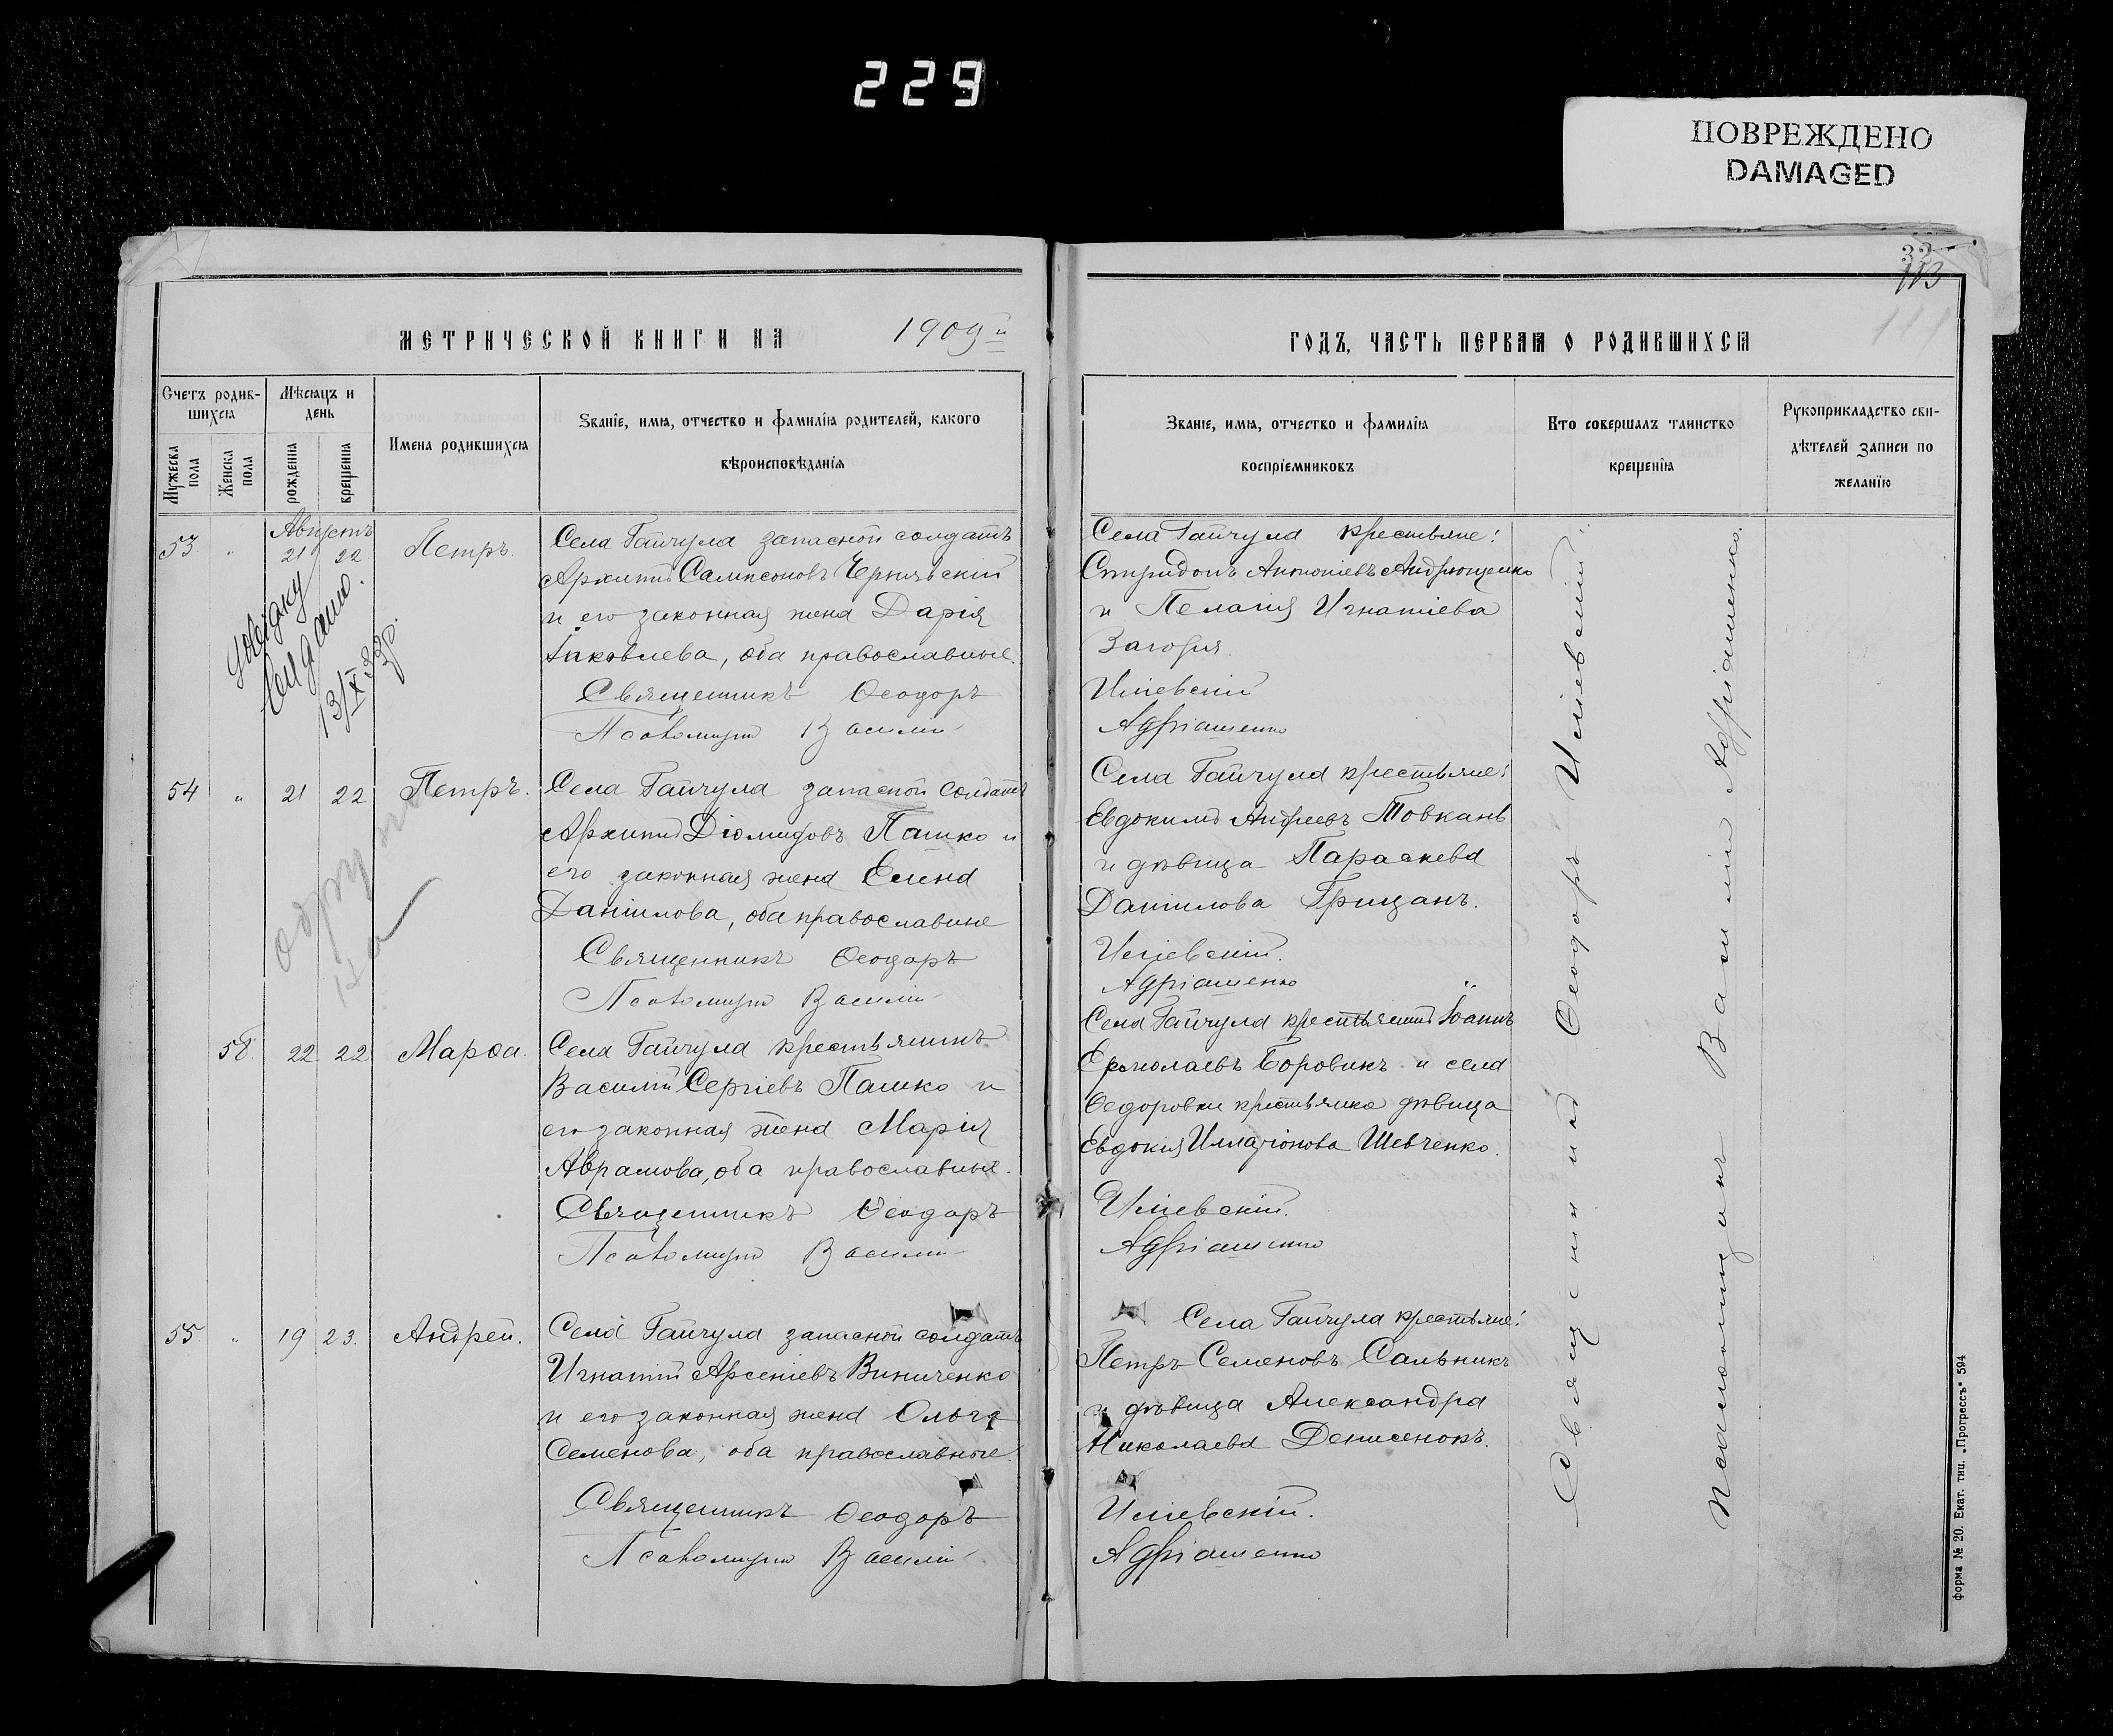 229
ПОВРЕЖДЕНО
DAMAGED
32
113
111
МЕТРИЧЕСКОЙ КНИГИ НА 1909й
ГОДЪ, ЧАСТЬ ПЕРВАЯ О РОДИВШИХСЯ
Счетъ родив-
шихся
Мужеска
пола
Женска
пола
Мѣсяцъ и
день
рожденія
крещенія
Имена родившихся
Званіе, имя, отчество и фамилія родителей, какого
вѣроисповѣданія
Званіе, имя, отчество и фамилія
воспріемниковъ
Кто совершалъ таинство
крещенія
Рукоприкладство сви-
дѣтелей записи по
желанію
Августъ
53 " 21 22 Петръ.
Села Гайчула запасной солдатъ
Архипъ Сампсоновъ
и его законная жена Дарія
Іаковлева, оба православные.
Священникъ Ѳеодоръ
Псаломщикъ Василій
Села Гайчула крестьяне:
Спиридонъ Антоніевъ Андрющенко
и Пелагія Игнатіева
Загорія.
Иліевскій
Адріашенко
довідку
13/IX 33р.
54 " 21 22 Петръ.
Села Гайчула запасной солдатъ
Архипъ Діомидовъ Пашко и
его законная жена Елена
Даніилова, оба православные
Священникъ Ѳеодоръ
Псаломщикъ Василій
Села Гайчула крестьяне:
Евдокимъ Андреевъ Товканъ
и дѣвица Параскева
Даніилова Грицанъ.
Иліевскій.
Адріашенко
58. 22 22 Марѳа.
Села Гайчула крестьянинъ
Василій Сергіевъ Пашко и
его законная жена Марія
Аврамова, оба православные.
Священникъ Ѳеодоръ
Псаломщикъ Василій
Села Гайчула крестьянинъ Іоаннъ
Ермолаевъ Боровикъ и села
Ѳедоровки крестьянка дѣвица
Евдокія Илларіонова Шевченко.
Иліевскій.
Адріашенко
55 " 19 23. Андрей.
Села Гайчула запасной солдатъ
Игнатій Арсеніевъ Виниченко
и его законная жена Ольга
Семенова, оба православные.
Священникъ Ѳеодоръ
Псаломщикъ Василій
Села Гайчула крестьяне:
Петръ Семеновъ Сальникъ
и дѣвица Александра
Николаева Денисенокъ.
Иліевскій.
Адріашенко
Священникъ Ѳеодоръ Иліевскій.
Псаломщикъ Василій Адріашенко.
Форма № 20. Екат. тип. „Прогрессъ“ 594